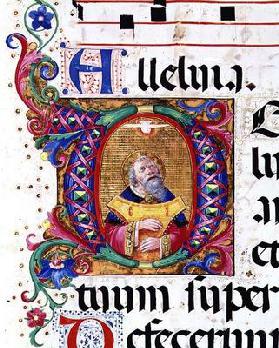 Alleluia.
D
lu
et
tuum super
Defecerun